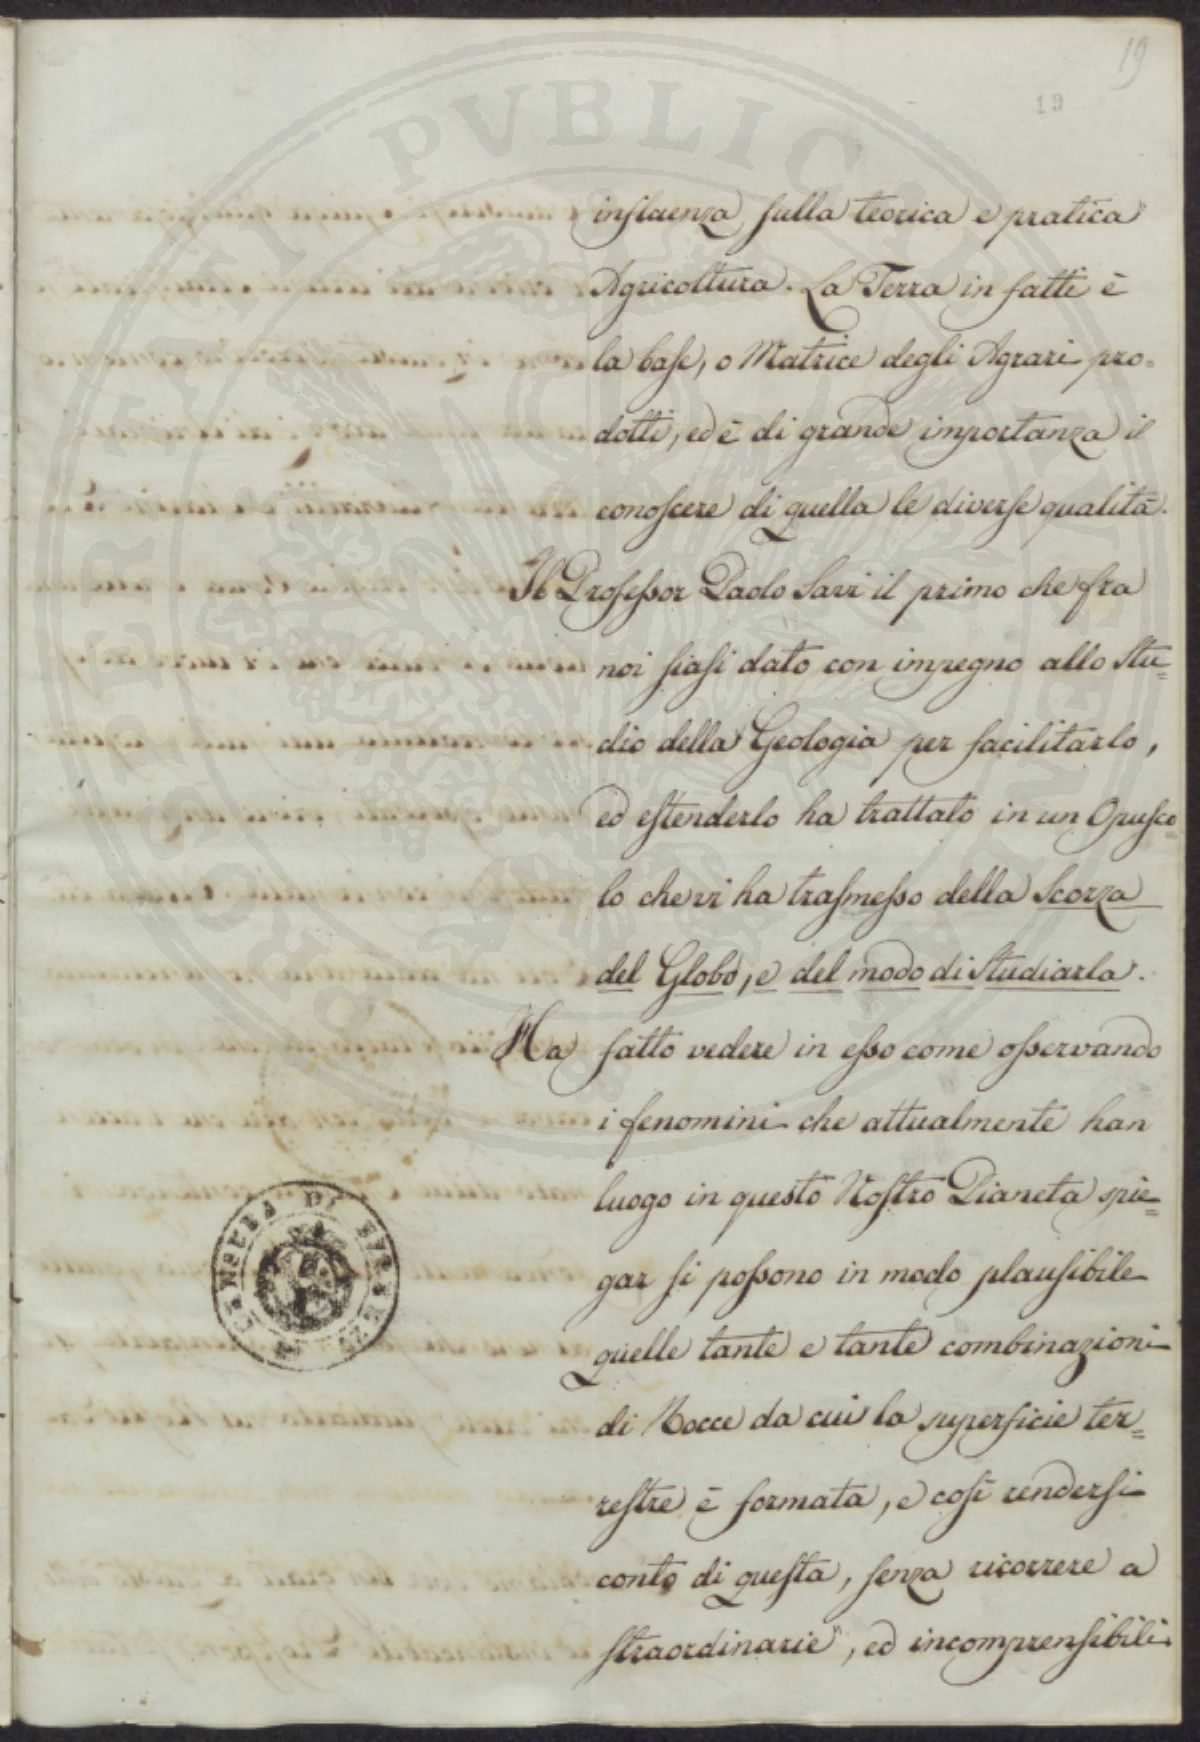 19
19
influenza sulla teorica e pratica
Agricoltura. La Terra in fatti è
la base, o Matrice degli Agrari pro=
dotti, ed è di grande importanza il
conoscere di quella le diverse qualità.
Il Professor Paolo Savi il primo che fra
noi siasi dato con impegno allo Stu=
dio della Geologia per facilitarlo,
ed estenderlo ha trattato in un Opusco=
lo che vi ha trasmesso della Scorza
del Globo, e del modo di studiarla.
Ha fatto vedere in esso come osservando
i fenomini che attualmente han
luogo in questo Nostro Pianeta spie=
gar si possono in modo plausibile
quelle tante e tante combinazioni
di Rocce da cui la superficie ter=
restre è formata, e così rendersi
conto di questa, senza ricorrere a
straordinarie, ed incomprensibili